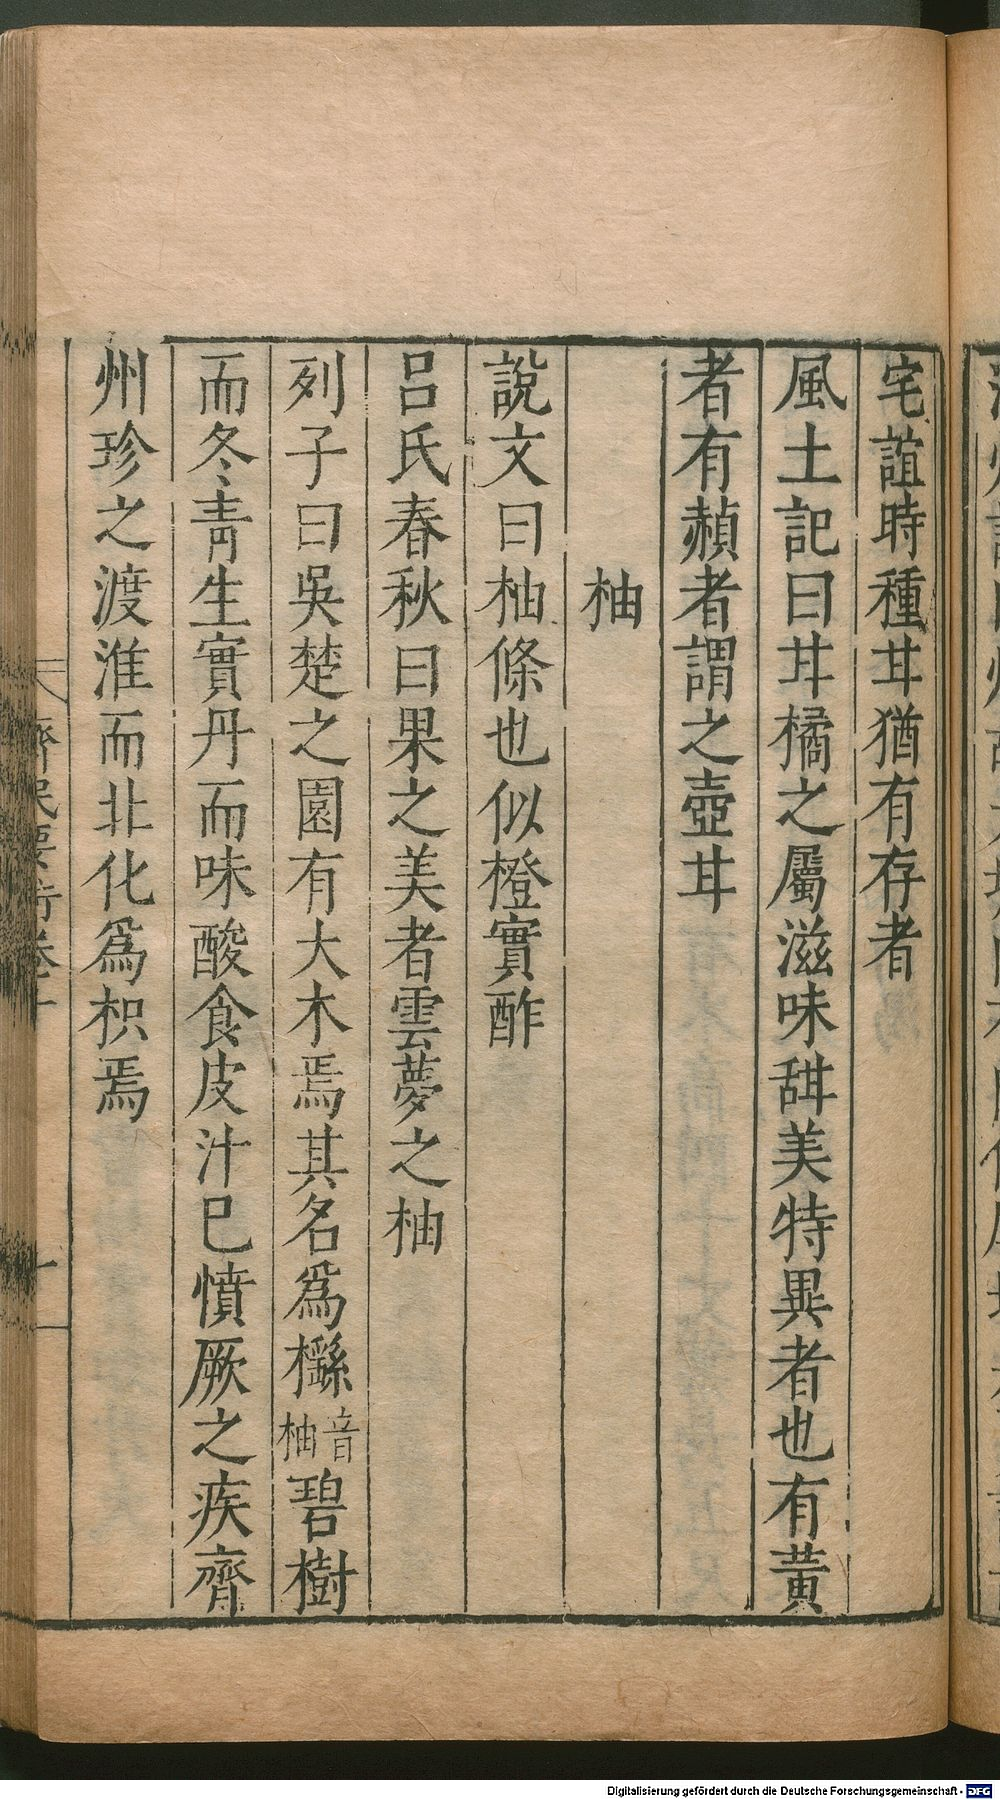 宅誼時種甘猶有存者
風土記曰甘橘之屬滋味甜美特異者也有黃
者有赬者謂之壺甘
柚
說文曰柚條也似橙實酢
呂氏春秋曰果之美者雲夢之柚
列子曰吳楚之園有大木焉其名爲櫾音柚碧樹
而冬青生實丹而味酸食皮汁已憤厥之疾齊
州珍之渡淮而北化爲枳焉
齊民要術卷十
十一
Digitalisierung gefördert durch die Deutsche Forschungsgemeinschaft - DFG